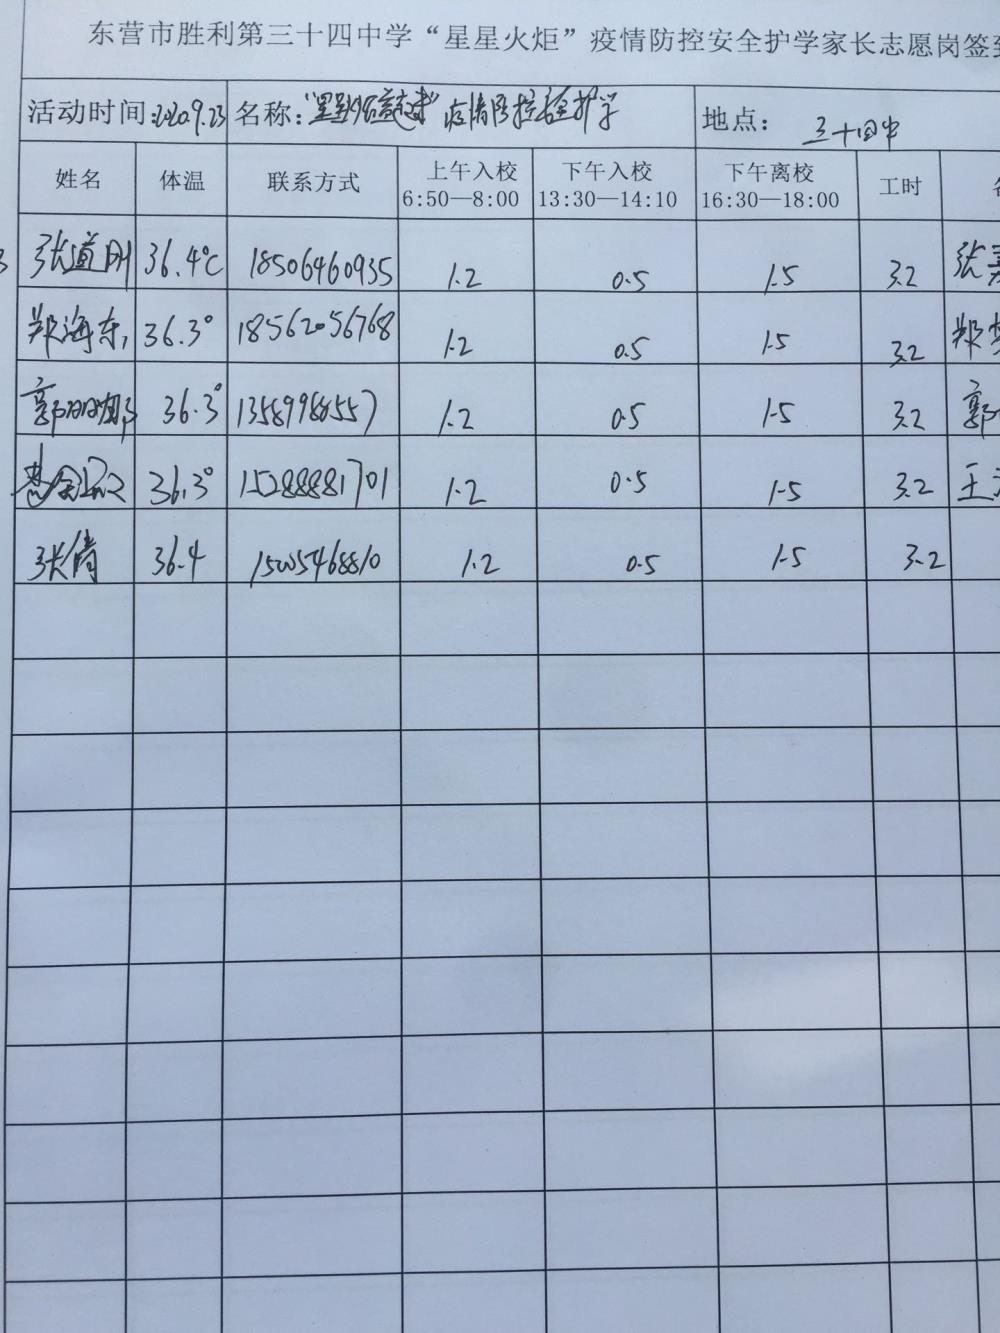 东营市胜利第三十四中学“星星火炬”疫情防控安全护学家长志愿岗签到
活动时间:2020.9.23 名称: 疫情防控安全护学 地点: 三十四中
姓名 体温 联系方式 上午入校 6:50—8:00 下午入校 13:30—14:10 下午离校 16:30—18:00 工时
张道刚 36.4℃ 18506460935 1.2 0.5 1.5 3.2 张
郑海东 36.3° 18562056768 1.2 0.5 1.5 3.2 郑
郭丽娜 36.3° 13589988557 1.2 0.5 1.5 3.2 郭
36.3° 15288881701 1.2 0.5 1.5 3.2 王
张倩 36.4 15005468810 1.2 0.5 1.5 3.2